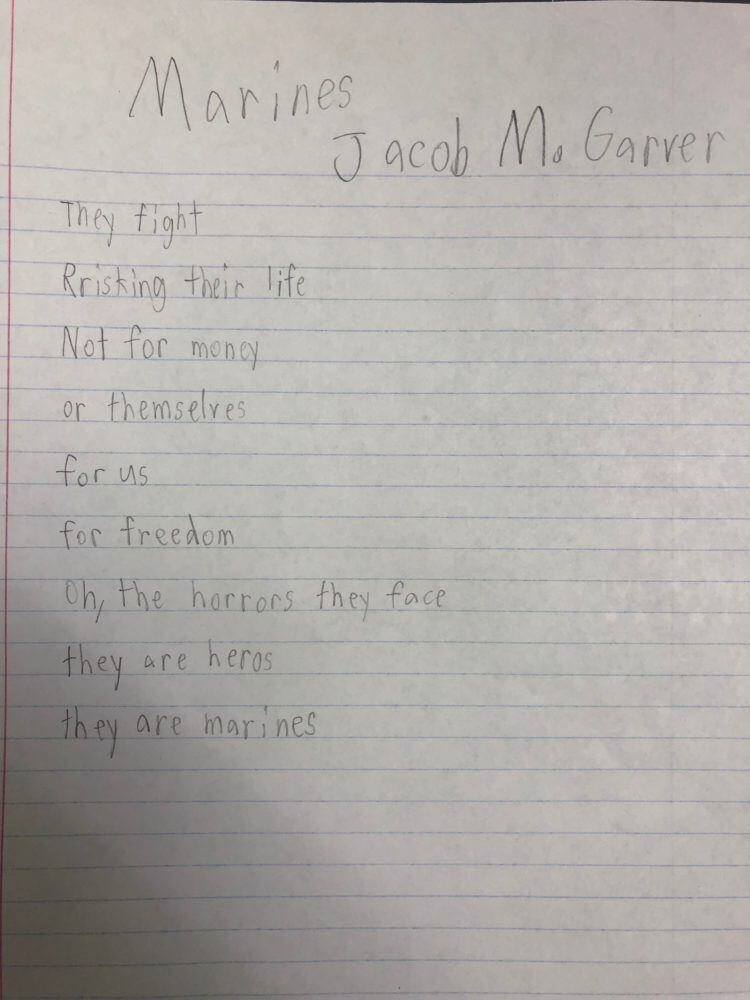 Marines
Jacob M. Garver
They fight
Rrisking their life
Not for money
or themselves
for us
for freedom
Oh, the horrors they face
they are heros
they are marines